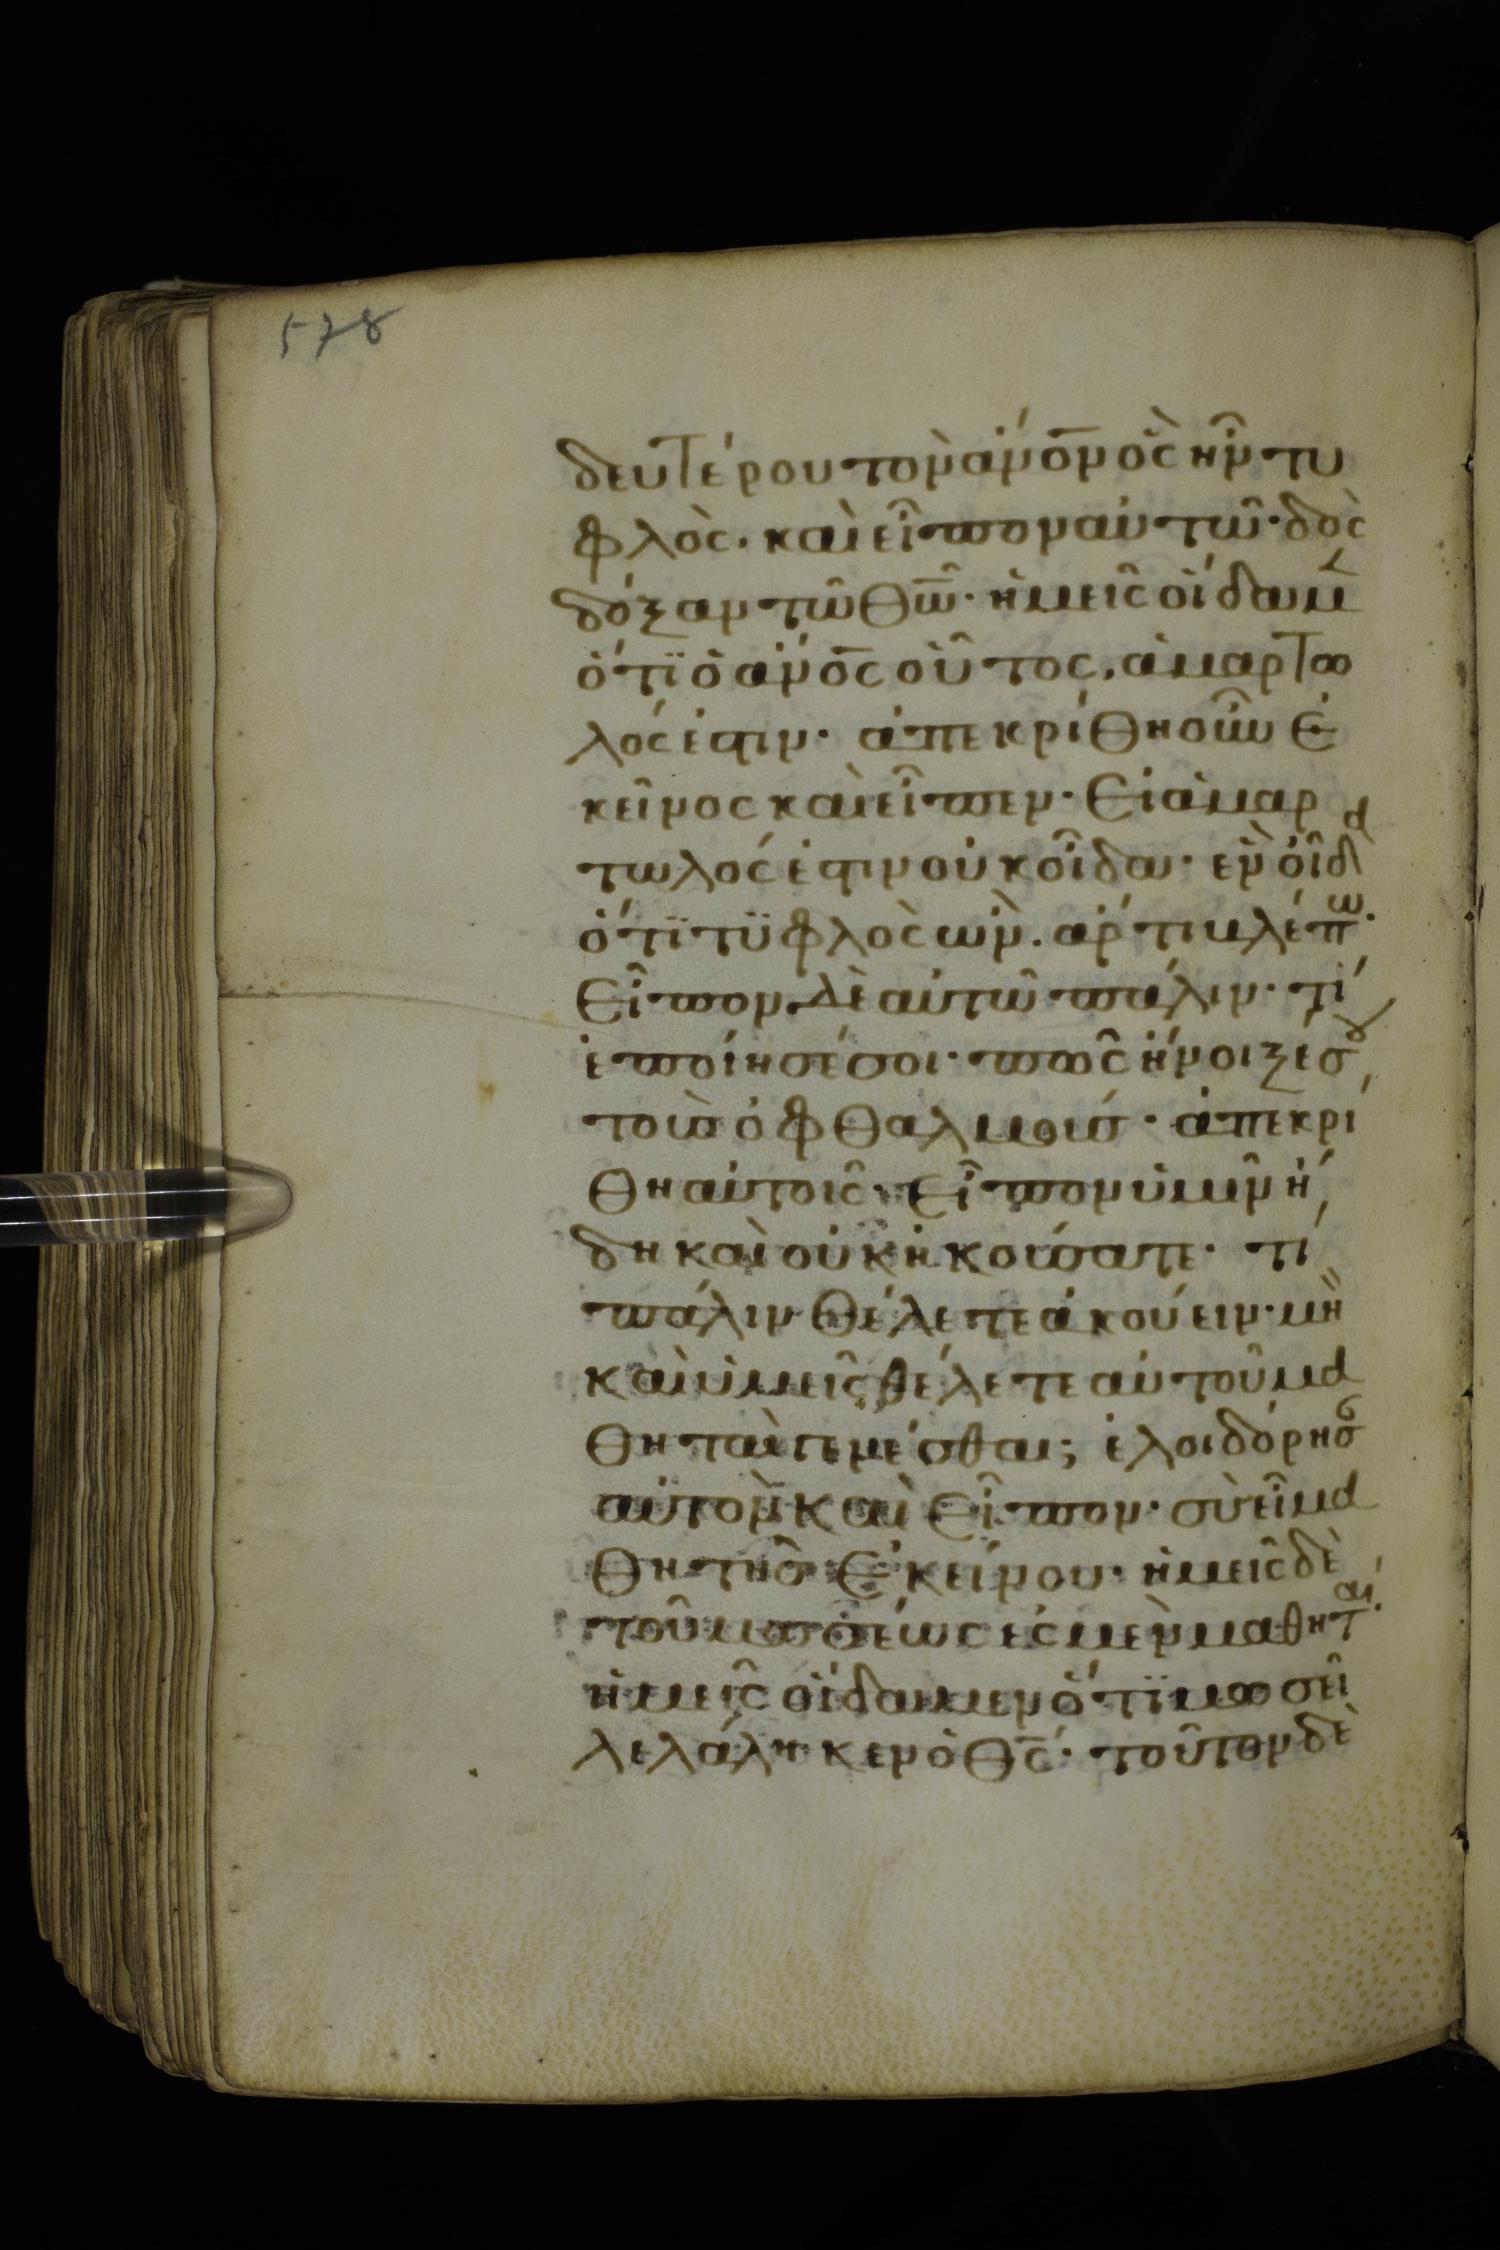 578
δευτέρου τὸν ἄν̅ο̅ν ὃς ἦν τυ
φλὸς. καὶ εἶπον αὐτῶ· δὸς
δόξαν τῶ θ̅ω̅· ἡμεῖς οἴδαμ
ὅτϊ ὁ ἄν̅ο̅ς οὗτος, ἁμαρτω
λός ἐστιν· ἀπεκρίθη οὖν ἐ
κεῖνος καὶ εἶπεν· Εἰ ἁμαρ
τωλός ἐστιν οὐκ οἶδα· ἓν οἶδα
ὅτϊ τϋφλὸς ὢν. ἄρτι βλέπω·
Εἶπον δὲ αὐτῶ πάλιν· τί
ἐποίησέ σοι· πῶς ἤνοιξε σου
τοὺς ὀφθαλμούς· ἀπεκρί
θη αὐτοῖς· Εἶπον ὑμῖν ἤ
δη καὶ οὐκ ἠκούσατε· τί
πάλιν θέλετε ἀκούειν· μὴ
καὶ ὑμεῖς θέλετε αὐτοῦ μα
θηταὶ γενέσθαι; ἐλοιδόρησ
αὐτὸν καὶ Εἶπον· σὺ εἶ μα
θητὴς Ἐκείνου· ἡμεῖς δὲ
τοῦ μωϋσέως ἐσμὲν μαθηταί·
ἡμεῖς οἴδαμεν ὅτϊ μωσεῖ
λελάληκεν ὁ θ̅ς̅· τοῦτον δὲ